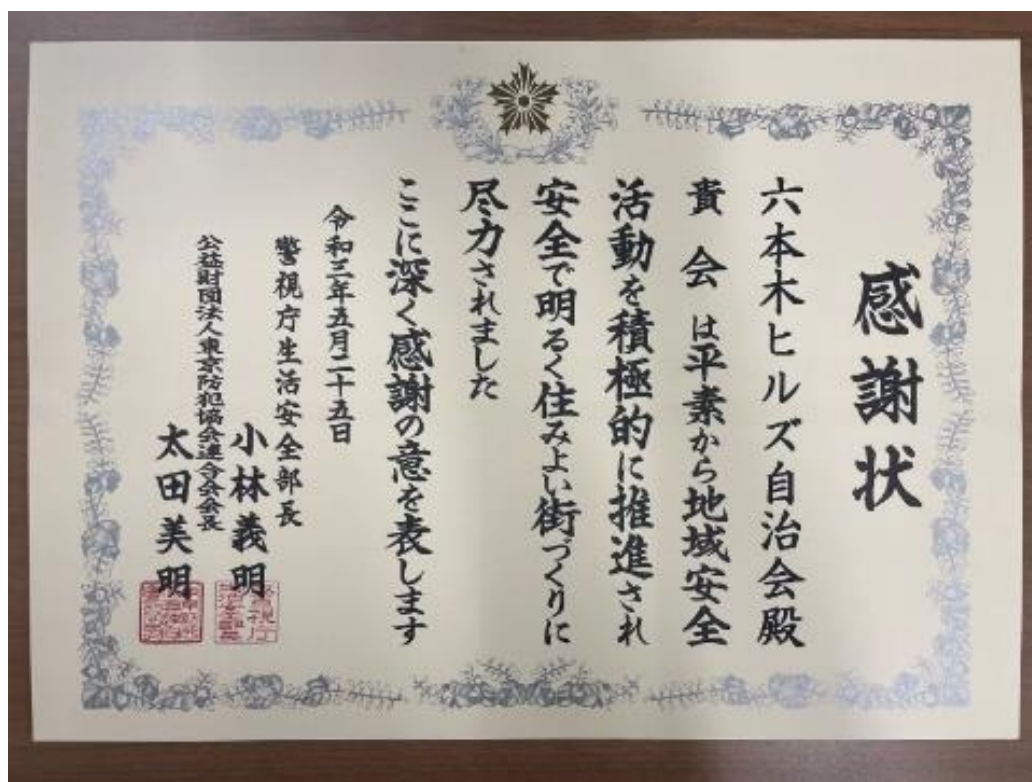 感謝状
六本木ヒルズ自治会殿
貴会は平素から地域安全
活動を積極的に推進され
安全で明るく住みよい街づくりに
尽力されました
ここに深く感謝の意を表します
令和三年五月二十五日
警視庁生活安全部長
小林義明
公益財団法人東京防犯協会連合会会長
太田美明